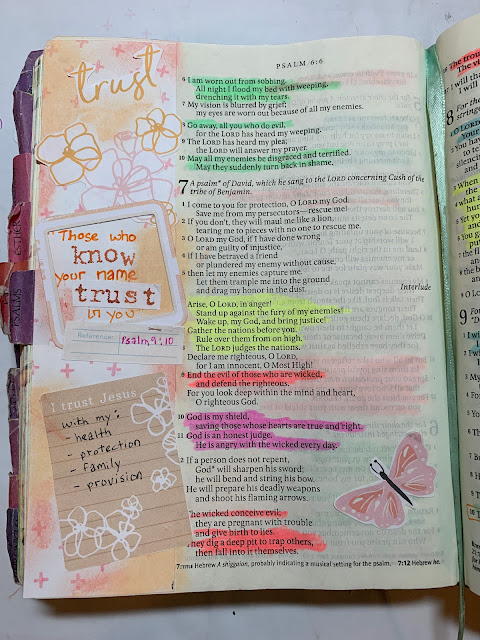 trust
Those who
know
your name
trust
in you
Reference:
Psalm 9:10
I trust Jesus
with my:
- health
- protection
- family
- provision
PSALMS
PSALM 6:6
6 I am worn out from sobbing.
All night I flood my bed with weeping,
drenching it with my tears.
7 My vision is blurred by grief;
my eyes are worn out because of all my enemies.
8 Go away, all you who do evil,
for the LORD has heard my weeping.
9 The LORD has heard my plea;
the LORD will answer my prayer.
10 May all my enemies be disgraced and terrified.
May they suddenly turn back in shame.
7 A psalm* of David, which he sang to the LORD concerning Cush of the
tribe of Benjamin.
1 I come to you for protection, O LORD my God.
Save me from my persecutors—rescue me!
2 If you don't, they will maul me like a lion,
tearing me to pieces with no one to rescue me.
3 O LORD my God, if I have done wrong
or am guilty of injustice,
4 if I have betrayed a friend
or plundered my enemy without cause,
5 then let my enemies capture me.
Let them trample me into the ground
and drag my honor in the dust. Interlude
Arise, O LORD, in anger!
Stand up against the fury of my enemies!
Wake up, my God, and bring justice!
Gather the nations before you.
Rule over them from on high.
The LORD judges the nations.
Declare me righteous, O LORD,
for I am innocent, O Most High!
9 End the evil of those who are wicked,
and defend the righteous.
For you look deep within the mind and heart,
O righteous God.
10 God is my shield,
saving those whose hearts are true and right.
11 God is an honest judge.
He is angry with the wicked every day.
2 If a person does not repent,
God* will sharpen his sword;
he will bend and string his bow.
He will prepare his deadly weapons
and shoot his flaming arrows.
The wicked conceive evil;
they are pregnant with trouble
and give birth to lies.
They dig a deep pit to trap others,
then fall into it themselves.
7:TITLE Hebrew A shiggaion, probably indicating a musical setting for the psalm. 7:12 Hebrew he.